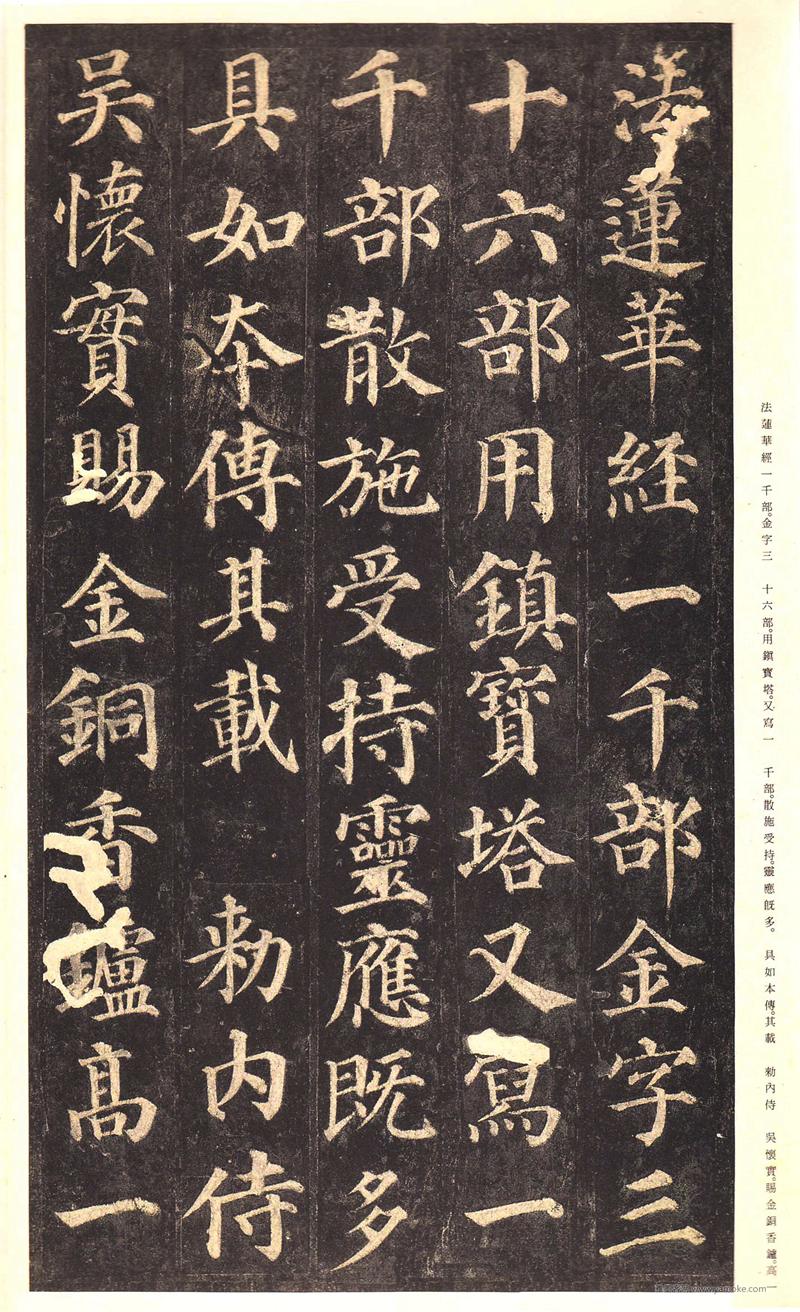 法蓮華経一千部金字三
十六部用鎮寶塔又寫一
千部散施受持靈應既多
具如夲傳其載 勅内侍
吴懷實賜金銅香鑪髙一
法蓮華經一千部。金字三 十六部。用鎭寶塔。又寫一 千部。散施受持。靈應旣多。 具如本傳。其載 勅內侍 吳懷實。賜金銅香鑪。高一